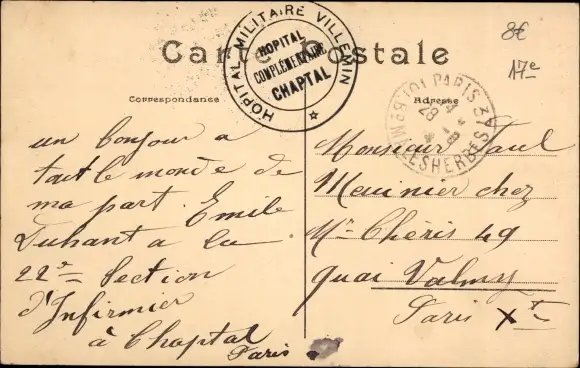 Carte Postale
HOPITAL MILITAIRE VILLEMIN
HOPITAL
COMPLÉMENTAIRE
CHAPTAL
8€
17e
Correspondance
Adresse
PARIS
MALESHERBES
28
un bonjour a
tout le monde de
ma part. Emile
Duhant a la
22e Section
d'Infirmier
à Chaptal
Paris
Monsieur Paul
Meunier chez
Mr Chéris 49
quai Valmy
Paris Xe